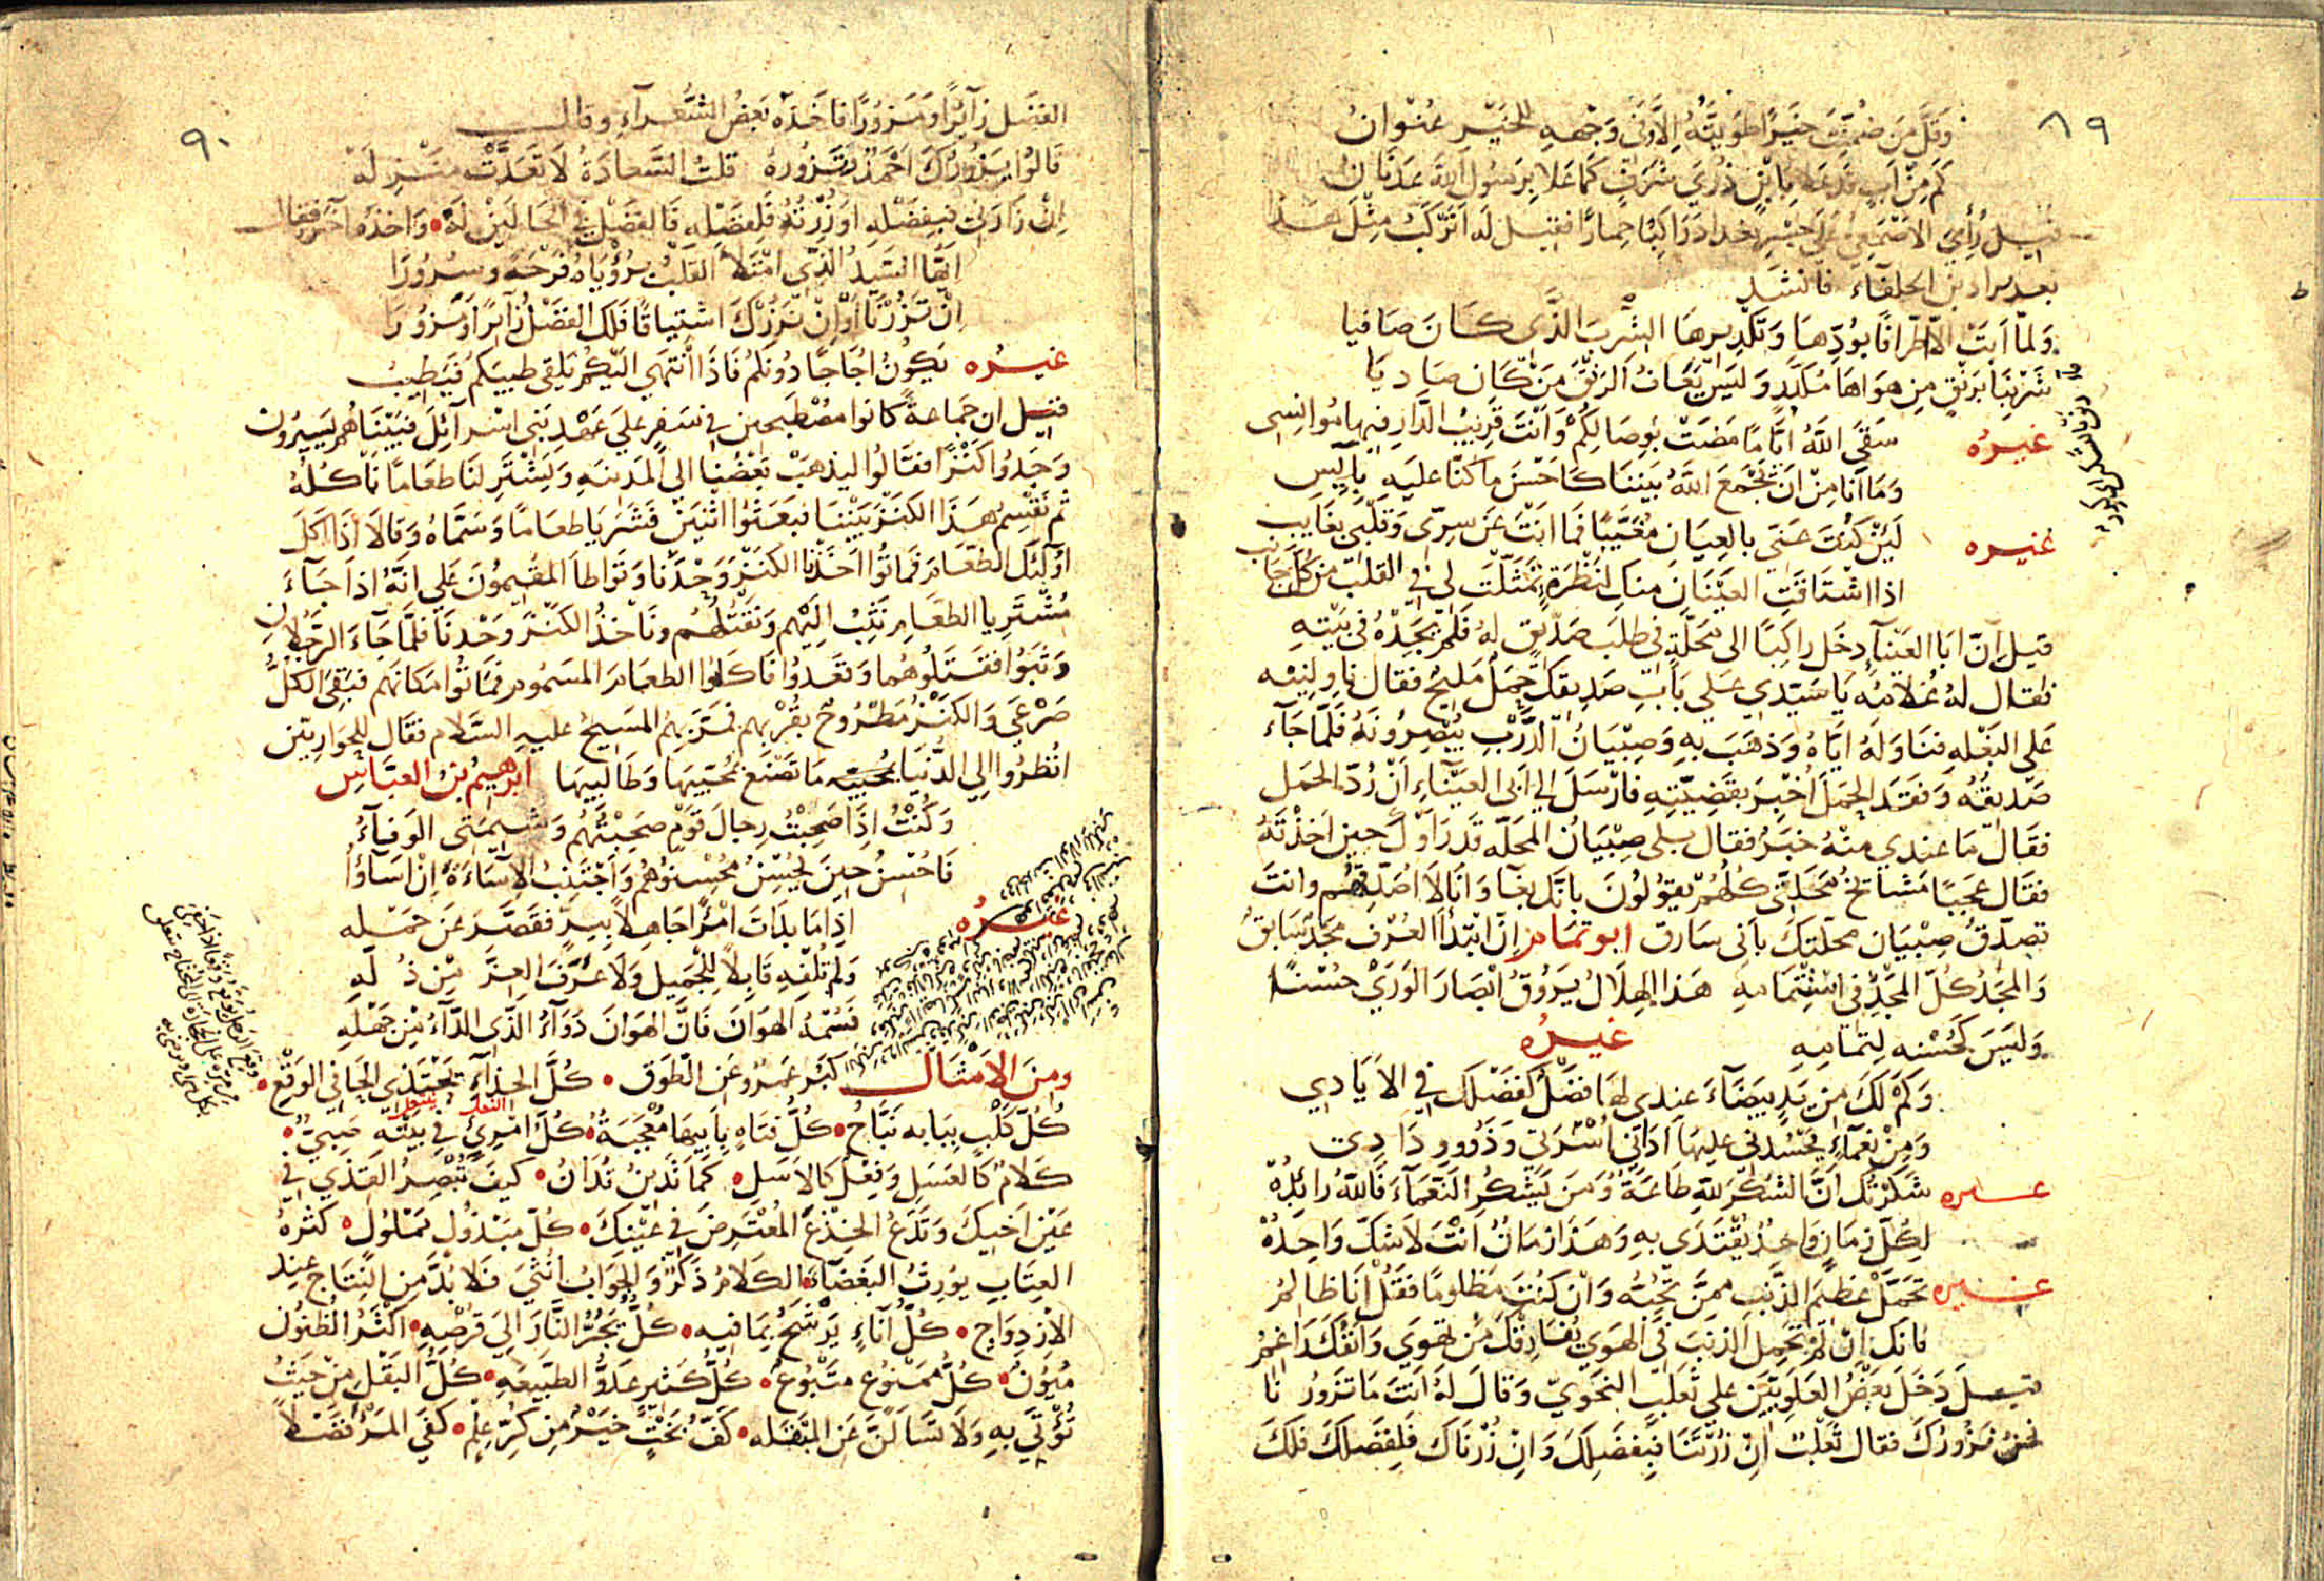 ٨٩
وَقَلَّ مَن ضُمِّنَتْ خَيْرًا طَوِيَّتُهُ اِلَّا وَفِى وَجْهِهِ لِلْخَيْرِ عُنْوَانُ
كَم مِنْ اَبٍ قَد عَلا بِابْنٍ ذُرَى شَرَفٍ كَمَا عَلَا بِرَسُولِ اللهِ عَدْنَانُ
قيل رُأِىَ الاصْمَعِىُّ عَلَى جِسْرِ بغداد رَاكِبًا حِمارًا فقيل له اَتَرْكَبُ مِثْلَ هَذا
بعد براذين الخلفاء فانشد
وَلمّا اَبَتْ اِلّا اطّرافًا بوُدِّهَا وَتَكْدِيرِهَا الشِّرْبَ الّذِى كَانَ صَافيا
شَرِبْنَا بَرَنْقٍ مِن هَوَاهَا مُكَدَّرٍ وَلَيسَ يَعَافُ الرَنْقَ مَنْ كَان صَادِيَا
غيره سَقَى اللهُ اَيّامًا مَضَتْ بِوِصَالِكُمْ وَاَنْتَ قَرِيبُ الدَّارِ فيها مُوانِسِى
وَمَا اَنَا مِنْ اَنْ يَجْمَعَ اللهُ بَيْنَنَا كَاَحْسَنِ ما كنّا عليهِ بآيس
غيره لَئِنْ كُنْتَ عَنّى بالعِيَانِ مُغَيَّبًا فَما اَنْتَ عَن سِرّى وَقَلْبى بغَايب
اذا اشْتَاقَتِ العَيْنَانِ منك لنَظْرَةٍ تَمَثّلتَ لى فى القلب من كل جَانب
قيل اَنّ ابَا العَيْنآء دخَل راكِبًا الى مَحَلّةٍ فى طلَب صَدِيقٍ له فَلَمْ يَجِدْهُ فى بَيْتِهِ
فقال لهُ غُلامُهُ يَا سَيّدِى عَلى بَابِ صَدِيقكَ حَمَلٌ مَليحٌ فقال ناوِلنِيْه
عَلى البَغْلهِ فنَاوَلَهُ ايّاهُ وَذهَبَ بِهِ وَصِبْيَانُ الدَّرْبِ يُبْصِرُونَهُ فَلَمَّا جَآءَ
صَدِيقُهُ وَفقَدَ الحَمَلَ اُخْبِرَ بقَضِيّتِهِ فَارْسَلَ الى اَبى العَيْنَاءِ اَنْ رُدّ الحَمَل
فَقَالَ مَا عندي منْهُ خَبَرٌ فقال بلى صِبْيَانُ المَحَلّه قَد رَاَوْكَ حِين اَخَذْتَهُ
فقَال عَجَبًا مَشَايخُ مَحَلَّتى كُلّهُمْ يقوُلوُنَ بانّك بغَا وَانَا لَا اُصَدِّقُهُم وانتَ
تصدّقُ صِبْيَان محَلّتِكَ بانّى سَارق ابو تمام اِنّ ابْتِدَآ العُرْفِ مَجْدٌ سَابقٌ
وَالمَجْدُ كُلّ المَجْدِ فى اسْتِتْمَامِهِ هَذا الهِلَالُ يَرُوْقُ ابْصَارَ الوَرَى حُسْنًا
وَليَسَ كَحُسْنِه لِتَمامِهِ غيره
وَكَمْ لَكَ مِن يَدٍ بَيضَآءَ عِندى لهَا فضْلٌ كفَضْلِكَ فى الاَيَادِي
وَمِنْ نَعْمآءِ يَحْسُدنى عليها اَدَانى اُسْرَتى وَذَوُو وِدَادِى
غيره شكَرْتُكَ اَنَّ الشُكْرَ للهِ طَاعَةٌ وَمَن يَشكُرِ النَعْمَآءَ فَاللهُ زائِدُهْ
لِكُلّ زَمَانٍ وَاحِدٌ يُقْتَدَى بِهِ وَهَذَا زمَانٌ اَنْتَ لاشَكَّ وَاحِدُهْ
غيره تَحَمّلْ عَظيمَ الذَّنْبِ ممَّنْ تحِبُّهُ وَاِن كُنْتَ مَظلومًا فقُلْ اَنَا ظَالِمُ
فانّك اِنْ لَمْ تَحْمِل الذنبَ فى الهَوى يُفَارِقْكَ مَن تهوَى وَانْفُكَ رَاغِمُ
قيل دَخَلَ بَعْضُ العَلَوِيّيَن على ثَعْلَبٍ النحَوىّ وَقالَ لهُ اَنتَ مَا تَزُورُنا
نحنُ نَزُورُكَ فقال ثعْلَبٌ اِنْ زُرْتَنَا فبِفَضْلِكَ وَاِنْ زُرْنَاكَ فَلِفَضلِكَ فَلَكَ
٩٠
الفضل زآئِرًا وَمَزوُرًا فاَخَذَه بَعضُ الشُّعَرآءِ وقال
قَالوُا يَزُورُكَ اَحْمَدُ وَتَزُورُهُ قلتُ السَّعادَةُ لا تَعَدَّتْ مَنْزِلَهْ
اِنْ زَارَنى فبِفَضْلِهِ اوْ زُرْتُهُ فَلِفضْلِهِ فَالفضْلُ فى الحَالَيْنِ لَهْ وَاخذه آخر فقال
اَيّها السَّيدُ الذّى امْتَلَأَ القَلْبُ برُؤْيَاهُ فَرْحَةً وسُرُورَا
اِنْ تَزُرْنَا اَوْ اِنْ نَزُرْكَ اشْتِياقًا فَلَكَ الفَضْلُ زآئِرًا وَمَزوُرَا
غيره يَكوُنُ اُجَاجًا دوُنَكمْ فاذَا انْتَهَى اليْكُمْ تَلَقّى طيبَكمْ فيَطِيبُ
قيل ان جَماعةً كانوا مصْطَحبين فى سَفرٍ على عَهْدِ بَنى اسْرآئيلَ فبَيْنَا هُم يَسِيرُونَ
وَجَدُوا كَنْزًا فقَالُوا ليذهَبْ بَعْضُنا الى المَدِينَةِ وَليَشْتَرِ لنَا طعَامًا نَاْكُلُهُ
ثمّ نَقْسِمُ هَذَا الكنَزَ بَيْنَنَا فبَعَثوُا اثْنَينْ فَشَرَيَا طعَامًا وَسَمَّاهُ وَقالَا اذَا اَكَلَ
اوُلَئِكَ الطّعَامَ فمَاتُوا اخَذْنَا الكنَزَ وَحْدَنَا وَتَوَاطاَ المُقِيموُنَ عَلى انّهُ اِذاَ جَآءَ
مُشْتَرِيا الطعَامِ نَثِبُ اِلَيْهِم وَنقْتُلُهُم وَنَاْخُذُ الكنَزَ وَحْدنَا فلَمّا جَاءَ الرّجُلانِ
وَثَبُوا فقَتَلُوهُما وَقَعَدُوا فَاَكَلُوا الطعَامَ المَسْمُوم فمَاتُوا مَكَانَهُم فبَقِىَ الكُلُّ
صَرْعَى وَالكنَزُ مَطْرُوحٌ بقُرْبِهِم فمَرّ بهِمُ المَسِيحُ عليهِ السَّلام فقَال للحَوَاريّين
انْظُرُوا الى الدُّنيَا مَا تَصْنَعُ بمُحِبّيهَا وَطَالِبيهَا ابرهيمُ بنُ العبّاس
وَكُنْتُ اِذَا صَحِبْتُ رِجالَ قَوْمٍ صَحِبْتُهُم وَشيمَتى الوَفآءُ
فَاُحْسِنُ حِينَ يُحْسِنُ مُحْسِنُوهُم وَاَجْتَنِبُ الاِسَاءَةَ اِنْ اسَآؤُا
غيره اِذا مَا بَلَاتَ امْرَأً جَاهِلاً بِبِرٍّ فَقَصَّرَ عَن حَمْلِهِ
وَلم تُلفِهِ قَابِلاً لِلْجَمِيل وَلَا عَرَفَ العِزَّ مِن ذُلِّهِ
فَسُمْهُ الهَوَانَ فَاِنَّ الهوَانَ دَوَآءُ الذّى الدَّآءُ مِن جَهْلِهِ
ومن الاَمْثَال كبُرَ عَمرٌو عَنِ الطّوَقِ كُلَّ الحِذاءِ يَحْتَذى الحَافى الوَقِعُ
النعل ينتعل
كُلّ كَلْبٍ بِبَابِه نَبَّاحٌ كُلُّ فتَاةٍ بِاَبيهَا مُعْجَبَةٌ كُلُّ امْرِئٍ فِى بَيْتِهِ صَبىٌّ
كَلامٌ كَالعَسَلِ وَفِعْلٌ كَالاَسَلِ كَمَا تَدِينُ تُدَانُ كيفَ تُبْصِرُ القَذَى فِى
عَيْنِ اَخِيكَ وَتَدَعُ الجِذْعَ المُعْتَرِضَ فى عَيْنِكَ كُلّ مَبْذُولٍ مَمْلوُلٌ كثْرَةُ
العِتَابِ يوُرِثُ البَغْضَآءَ الكلامُ ذَكَرٌ وَالجَوَابُ اُنْثَى فَلا بُدّ مِن النّتَاجِ عِند
الاِزْدِوَاجِ كُلُّ اَنآءٍ يَرْشَحُ بِمَا فيه كُلٌّ يَجُرُّ النَّارَ اِلىَ قُرْصِهِ اَكثَرُ الظُنوُن
مُيُوُنٌ كلُّ مَمْنُوعٍ مَتْبُوعٌ كُلُّ كَثِيرٍ عَدُوُّ الطَّبيعَهِ كُلُّ البَقْلَ مِنْ حَيثُ
تُؤْتَى بهِ وَلَا تَسْاَلَنَّ عَنِ المَبْقَلَه كَفُّ بَخْتٍ خَيرٌ مِن كُرِّ عِلْمٍ كفَى المَرْءَ فَضْلاً